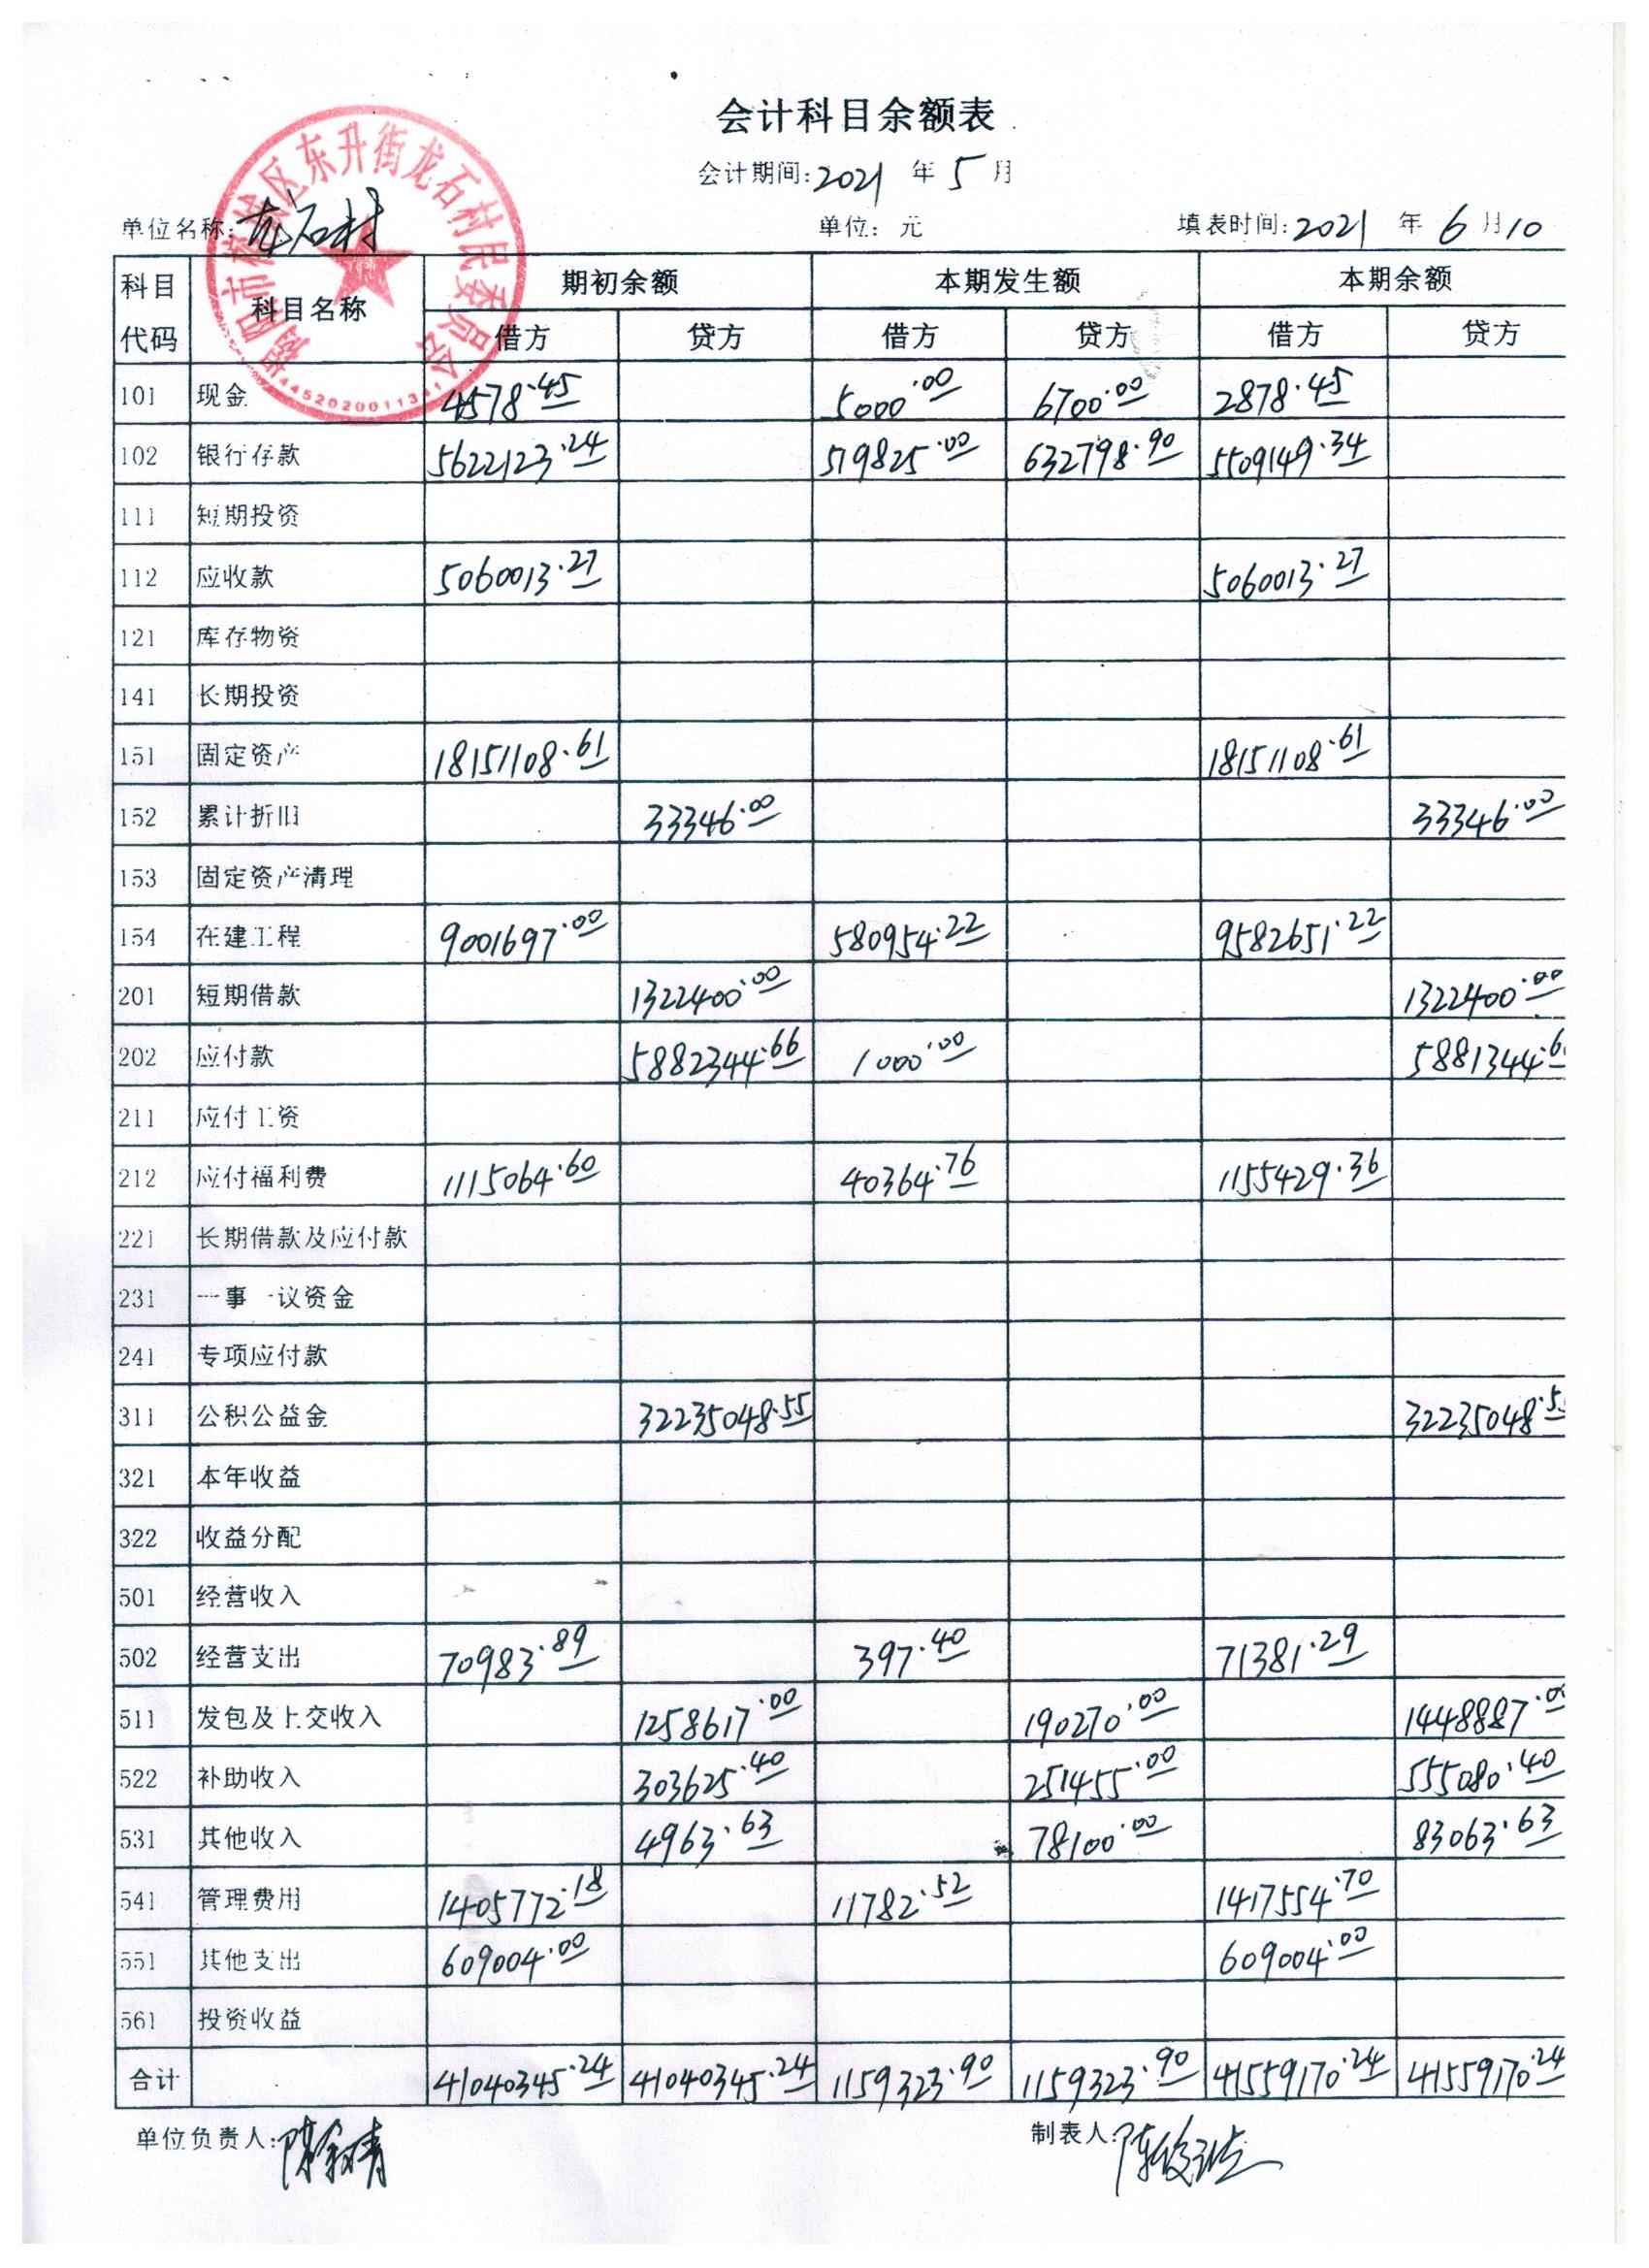 会计科目余额表
会计期间:2021 年 5 月
单位名称:龙石村 单位：元 填表时间:2021 年 6 月10
榕区东升街龙石村民委员会
科目代码 科目名称 期初余额 本期发生额 本期余额
借方 贷方 借方 贷方 借方 贷方
101 现金 4578.45 5000.00 6700.00 2878.45
102 银行存款 5622123.24 519825.00 632798.90 5509149.34
111 短期投资
112 应收款 5060013.27 5060013.27
121 库存物资
141 长期投资
151 固定资产 18151108.61 18151108.61
152 累计折旧 33346.00 33346.00
153 固定资产清理
154 在建工程 9001697.00 580954.22 9582651.22
201 短期借款 1322400.00 1322400.00
202 应付款 5882344.66 1000.00 5881344.6
211 应付工资
212 应付福利费 1115064.60 40364.76 1155429.36
221 长期借款及应付款
231 一事一议资金
241 专项应付款
311 公积公益金 32235048.55 32235048.5
321 本年收益
322 收益分配
501 经营收入
502 经营支出 70983.89 397.40 71381.29
511 发包及上交收入 1258617.00 190270.00 1448887.0
522 补助收入 303625.40 251455.00 555080.40
531 其他收入 4963.63 78100.00 83063.63
541 管理费用 1405772.18 11782.52 1417554.70
551 其他支出 609004.00 609004.00
561 投资收益
合计 41040345.24 41040345.24 1159323.90 1159323.90 41559170.24 41559170.24
单位负责人: 制表人: